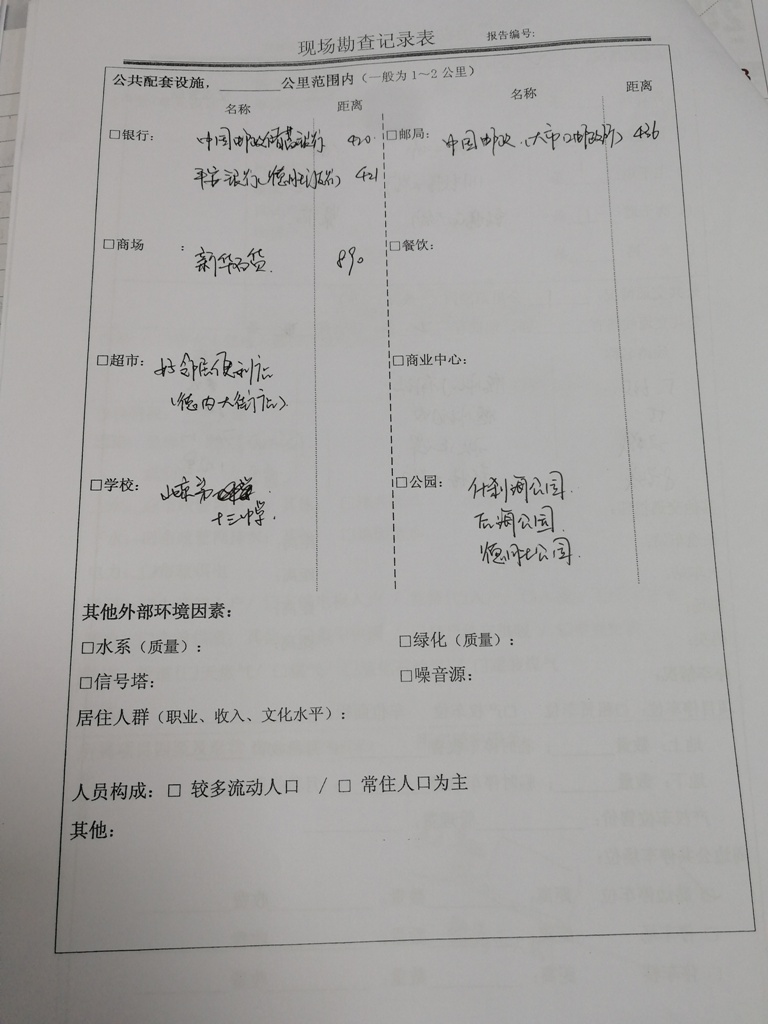 现场勘查记录表 报告编号:
公共配套设施，______公里范围内（一般为1～2公里）
名称 距离 名称 距离
□银行： 中国邮政储蓄银行 420 □邮局： 中国邮政（大市口邮政所） 426
平安银行（德胜门支行） 421
□商场 ： 新华百货 890 □餐饮：
□超市： 好邻居便利店 □商业中心：
（德内大街店）
□学校： 第 □公园： 什刹海公园
十三中学 后海公园
德胜公园
其他外部环境因素：
□水系（质量）： □绿化（质量）：
□信号塔： □噪音源：
居住人群（职业、收入、文化水平）：
人员构成：□ 较多流动人口 / □ 常住人口为主
其他：